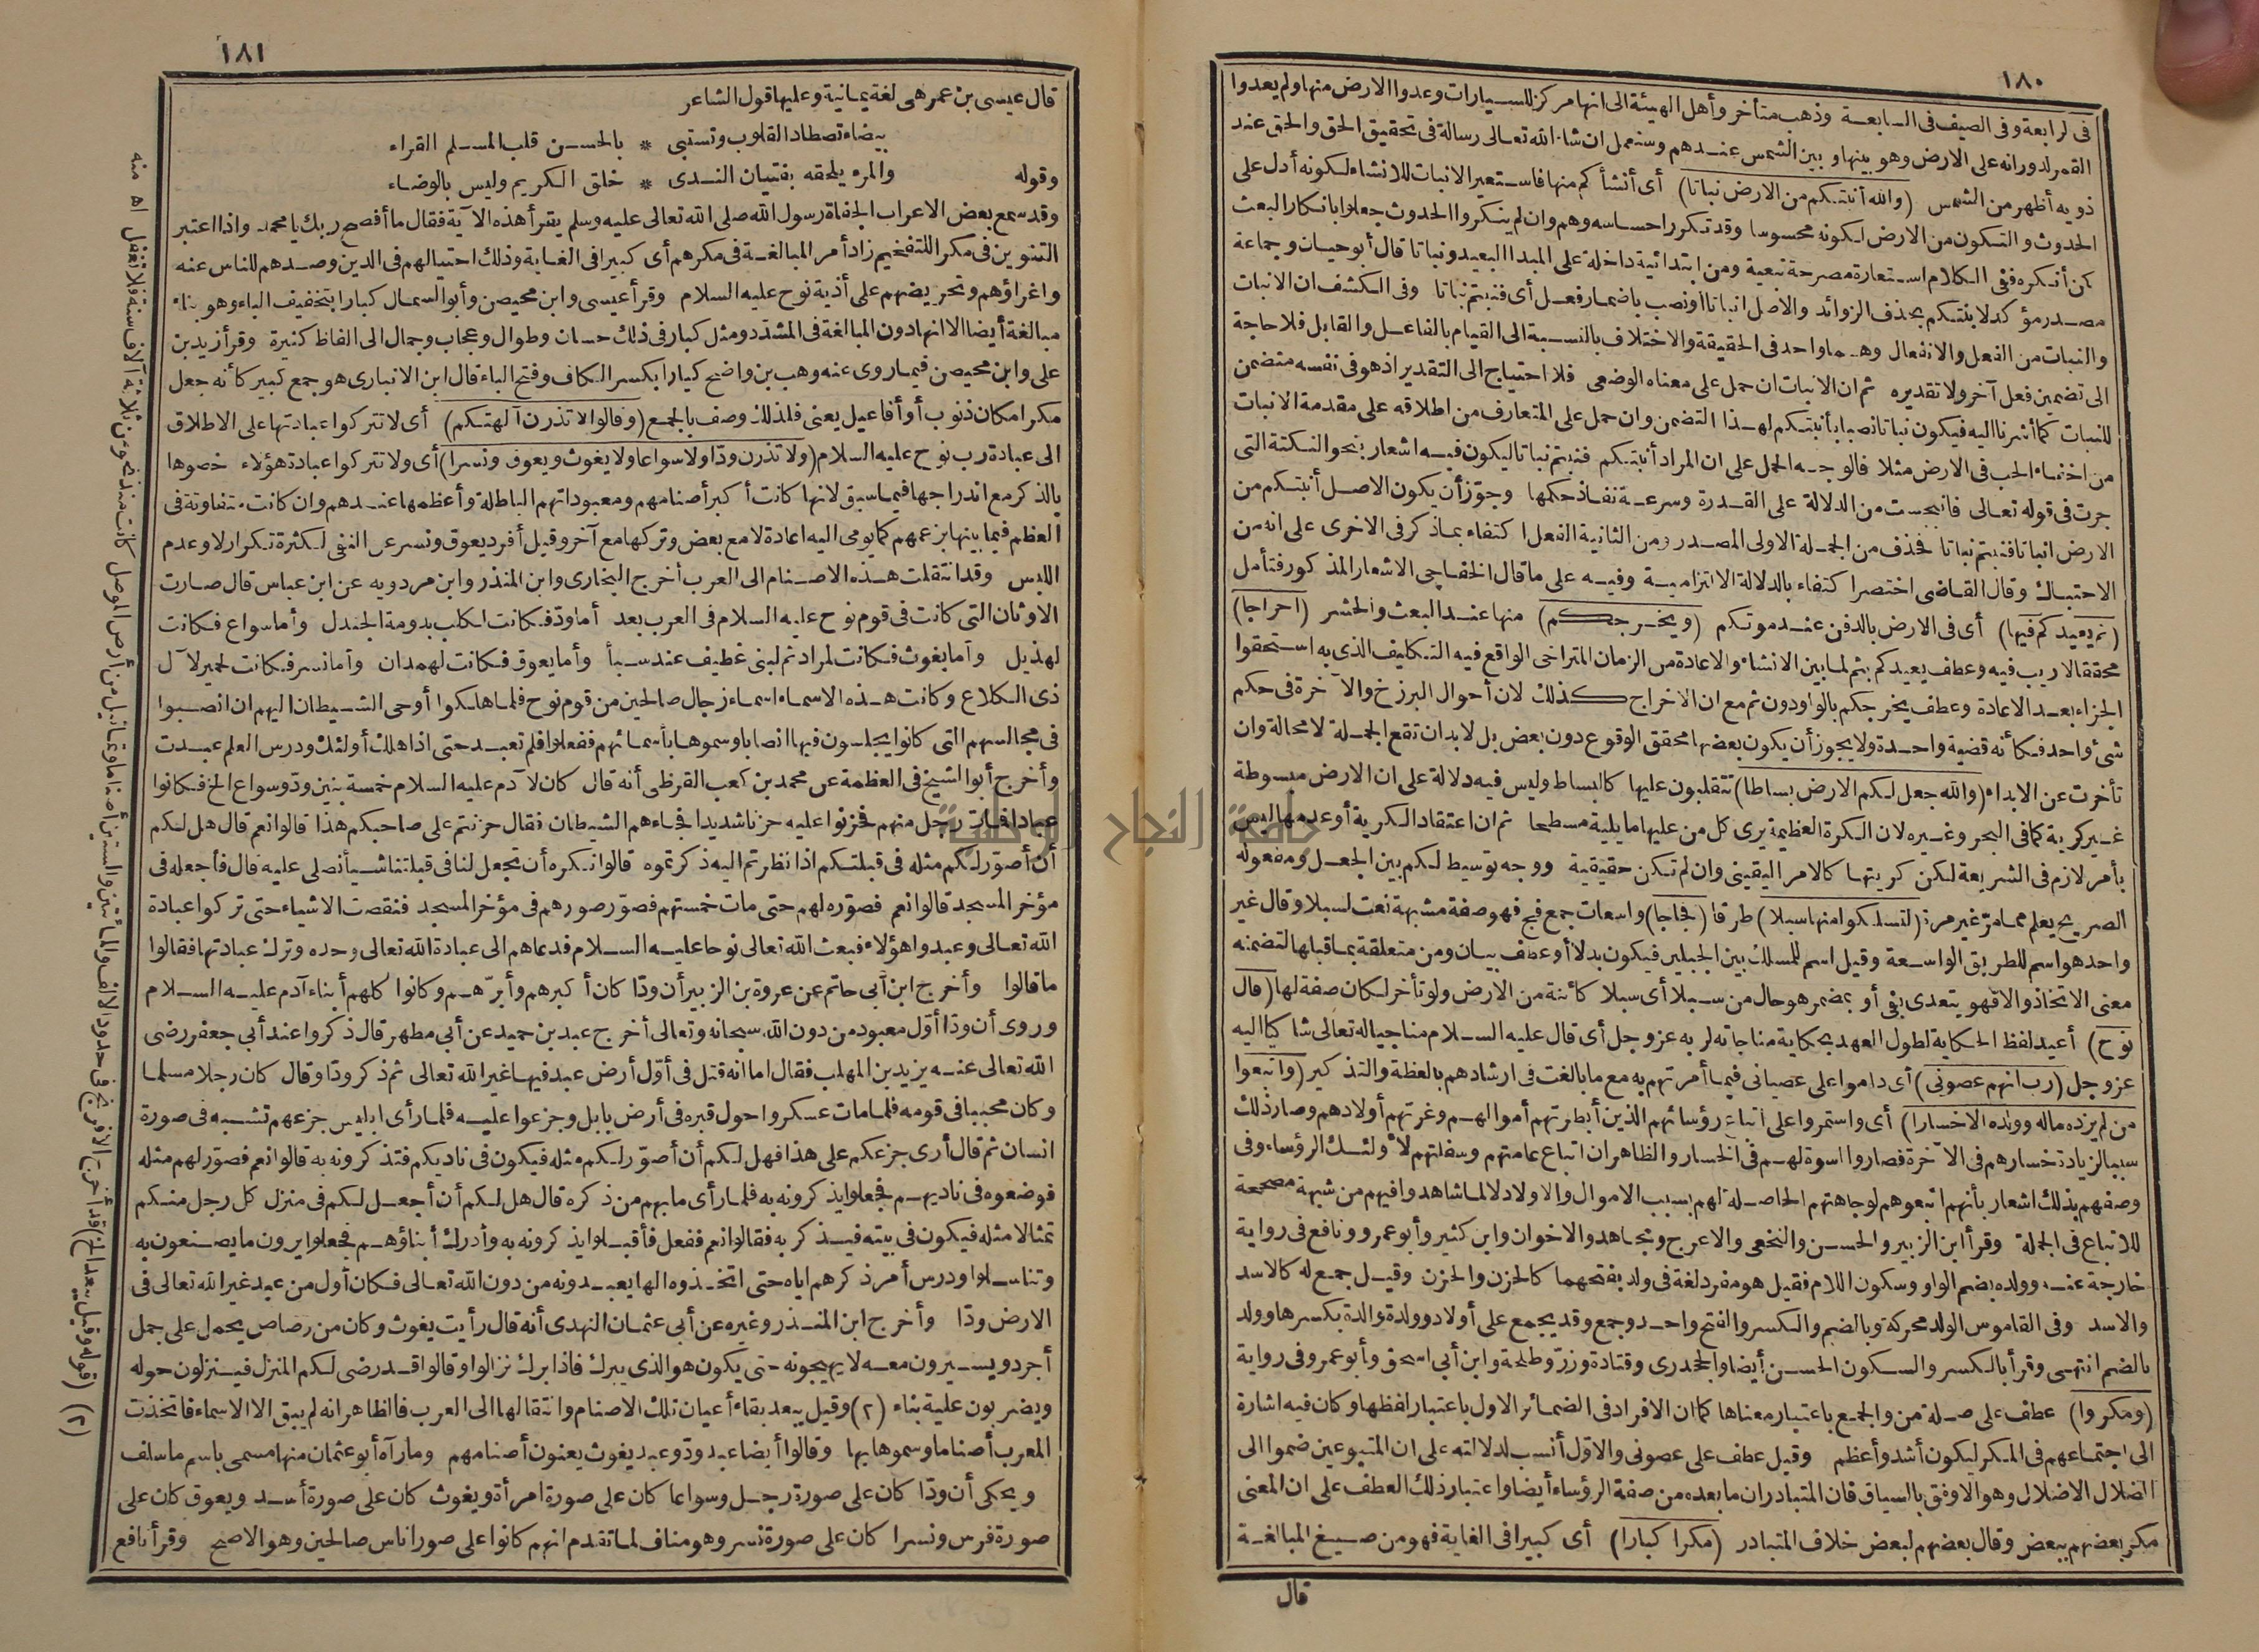 ١٨٠
فى الرابعة وفى الصيف فى السابعة وذهب متأخر وأهل الهيئة الى انها مركز للسيارات وعدوا الارض منها ولم يعدوا
القمر لدورانه على الارض وهو بينها وبين الشمس عندهم وسنعمل ان شاء الله تعالى رسالة فى تحقيق الحق والحق عند
ذويه أظهر من الشمس (والله أنبتكم من الارض نباتا) أى أنشأكم منها فاستعير الانبات للانشاء لكونه أدل على
الحدوث والتكون من الارض لكونه محسوسا وقد تكرر احساسه وهم وان لم ينكروا الحدوث جعلوا بانكار البعث
كمن أنكره ففى الكلام استعارة مصرحة تبعية ومن ابتدائية داخلة على المبدا البعيد ونباتا قال أبو حيان وجماعة
مصدر مؤكد لانبتكم بحذف الزوائد والاصل انباتا أو نصب باضمار فعل أى فنبتم نباتا وفى الكشف ان الانبات
والنبات من الفعل والانفعال وهما واحد فى الحقيقة والاختلاف بالنسبة الى القيام بالفاعل والقابل فلا حاجة
الى تضمين فعل آخر ولا تقديره ثم ان الانبات ان حمل على معناه الوضعى فلا احتياج الى التقدير اذ هو فى نفسه متضمن
للنبات كما أشرنا اليه فيكون نباتا نصبا بأنبتكم لهذا التضمن وان حمل على المتعارف من اطلاقه على مقدمة الانبات
من اخفاء الحب فى الارض مثلا فالوجه الحمل على ان المراد أنبتكم فنبتم نباتا ليكون فيه اشعار بنحو النكتة التى
جرت فى قوله تعالى فانبجست من الدلالة على القدرة وسرعة نفاذ حكمها وجوّز أن يكون الاصل أنبتكم من
الارض انباتا فنبتم نباتا فحذف من الجملة الاولى المصدر ومن الثانية الفعل اكتفاء بما ذكر فى الاخرى على انه من
الاحتباك وقال القاضى اختصر اكتفاء بالدلالة الالتزامية وفيه على ما قال الخفاجى الاشعار المذكور فتأمل
(ثم يعيدكم فيها) أى فى الارض بالدفن عند موتكم (ويخرجكم) منها عند البعث والحشر (اخراجا)
محققا لا ريب فيه وعطف يعيدكم بثم لما بين الانشاء والاعادة من الزمان المتراخى الواقع فيه التكليف الذى به استحقوا
الجزاء بعد الاعادة وعطف يخرجكم بالواو دون ثم مع ان الاخراج كذلك لان أحوال البرزخ والآخرة فى حكم
شئ واحد فكأنه قضية واحدة ولا يجوز أن يكون بعضها محقق الوقوع دون بعض بل لا بد ان تقع الجملة لا محالة وان
تأخرت عن الابداء (والله جعل لكم الارض بساطا) تتقلبون عليها كالبساط وليس فيه دلالة على ان الارض مبسوطة
غير كرية كما فى البحر وغيره لان الكرة العظيمة يرى كل من عليها ما يليه مسطحا ثم ان اعتقاد الكرية أو عدمها ليس
بأمر لازم فى الشريعة لكن كريتها كالامر اليقينى وان لم تكن حقيقية ووجه توسيط لكم بين الجعل ومفعوله
الصريح يعلم مما مرّ غير مرة (لتسلكوا منها سبلا) طرقا (فجاجا) واسعات جمع فج فهو صفة مشبهة نعت لسبلا وقال غير
واحد هو اسم للطريق الواسعة وقيل اسم للمسلك بين الجبلين فيكون بدلا أو عطف بيان ومن متعلقة بما قبلها لتضمنه
معنى الاتخاذ والا فهو يتعدى بفى أو بمضمر هو حال من سبلا أى سبلا كائنة من الارض ولو تأخر لكان صفة لها (قال
نوح) أعيد لفظ الحكاية لطول العهد بحكاية مناجاته لربه عز وجل أى قال عليه السلام مناجيا له تعالى شاكيا اليه
عز وجل (رب انهم عصونى) أى داموا على عصيانى فيما أمرتهم به مع ما بالغت فى ارشادهم بالعظة والتذكير (واتبعوا
من لم يزده ماله وولده الاخسارا) أى واستمروا على اتباع رؤسائهم الذين أبطرتهم أموالهم وغرتهم أولادهم وصار ذلك
سببا لزيادة خسارهم فى الآخرة فصاروا اسوة لهم فى الخسار والظاهر ان اتباع عامتهم وسفلتهم لأولئك الرؤساء وفى
وصفهم بذلك اشعار بأنهم اتبعوهم لوجاهتهم الحاصلة لهم بسبب الاموال والاولاد لا لما شاهدوا فيهم من شبهة مصححة
للاتباع فى الجملة وقرأ ابن الزبير والحسن والنخعى والاعرج ومجاهد والاخوان وابن كثير وأبو عمرو ونافع فى رواية
خارجة عنه وولده بضم الواو وسكون اللام فقيل هو مفرد لغة فى ولد بفتحهما كالحزن والحزن وقيل جمع له كالاسد
والاسد وفى القاموس الولد محركة وبالضم والكسر والفتح واحد وجمع وقد يجمع على أولاد وولدة والدة بكسرها وولد
بالضم انتهى وقرأ بالكسر والسكون الحسن أيضا والجحدرى وقتادة وزرّ وطلحة وابن أبى اسحق وأبو عمرو فى رواية
(ومكروا) عطف على صلة من والجمع باعتبار معناها كما ان الافراد فى الضمائر الاول باعتبار لفظها وكان فيه اشارة
الى اجتماعهم فى المكر ليكون أشد وأعظم وقيل عطف على عصونى والاول أنسب لدلالته على ان المتبوعين ضموا الى
الضلال الاضلال وهو الاوفق بالسياق فان المتبادر ان ما بعده من صفة الرؤساء أيضا واعتبار ذلك العطف على ان المعنى
مكر بعضهم ببعض وقال بعضهم لبعض خلاف المتبادر (مكرا كبارا) أى كبيرا فى الغاية فهو من صيغ المبالغة
قال
١٨١
قال عيسى بن عمر هى لغة يمانية وعليها قول الشاعر
بيضاء تصطاد القلوب وتستبى * بالحسن قلب المسلم القراء
وقوله والمرء يلحقه بفتيان الندى * خلق الكريم وليس بالوضاء
وقد سمع بعض الاعراب الجفاة رسول الله صلى الله تعالى عليه وسلم يقرأ هذه الآية فقال ما أفصح ربك يا محمد واذا اعتبر
التنوين فى مكرا للتفخيم زاد أمر المبالغة فى مكرهم أى كبيرا فى الغاية وذلك احتيالهم فى الدين وصدهم للناس عنه
واغراؤهم وتحريضهم على أذية نوح عليه السلام وقرأ عيسى وابن محيصن وأبو السمال كبارا بتخفيف الباء وهو بناء
مبالغة أيضا الا انها دون المبالغة فى المشدد ومثل كبار فى ذلك حسان وطوال وعجاب وجمال الى الفاظ كثيرة وقرأ زيد بن
على وابن محيصن فيما روى عنه وهب بن واضح كبارا بكسر الكاف وفتح الباء قال ابن الانبارى هو جمع كبير كأنه جعل
مكرا مكان ذنوب أو أفاعيل يعنى فلذلك وصف بالجمع (وقالوا لا تذرن آلهتكم) أى لا تتركوا عبادتها على الاطلاق
الى عبادة رب نوح عليه السلام (ولا تذرن ودّا ولا سواعا ولا يغوث ويعوق ونسرا) أى ولا تتركوا عبادة هؤلاء خصوها
بالذكر مع اندراجها فيما سبق لانها كانت أكبر أصنامهم ومعبوداتهم الباطلة وأعظمها عندهم وان كانت متفاوتة فى
العظم فيما بينها بزعمهم كما يومى اليه اعادة لا مع بعض وتركها مع آخر وقيل أفرد يعوق ونسر عن النفى لكثرة تكرار لا وعدم
اللبس وقد انتقلت هذه الاصنام الى العرب أخرج البخارى وابن المنذر وابن مردويه عن ابن عباس قال صارت
الاوثان التى كانت فى قوم نوح عليه السلام فى العرب بعد أما ودّ فكانت لكلب بدومة الجندل وأما سواع فكانت
لهذيل وأما يغوث فكانت لمراد ثم لبنى غطيف عند سبأ وأما يعوق فكانت لهمدان وأما نسر فكانت لحمير لآل
ذى الكلاع وكانت هذه الاسماء اسماء رجال صالحين من قوم نوح فلما هلكوا أوحى الشيطان اليهم ان انصبوا
فى مجالسهم التى كانوا يجلسون فيها انصابا وسموها بأسمائهم ففعلوا فلم تعبد حتى اذا هلك أولئك ودرس العلم عبدت
وأخرج أبو الشيخ فى العظمة عن محمد بن كعب القرظى أنه قال كان لآدم عليه السلام خمسة بنين ودّ وسواع الخ فكانوا
عبادا فمات رجل منهم فحزنوا عليه حزنا شديدا فجاءهم الشيطان فقال حزنتم على صاحبكم هذا قالوا نعم قال هل لكم
أن أصوّر لكم مثله فى قبلتكم اذا نظرتم اليه ذكرتموه قالوا نكره أن تجعل لنا فى قبلتنا شيأ نصلى عليه قال فأجعله فى
مؤخر المسجد قالوا نعم فصوّره لهم حتى مات خمستهم فصوّر صورهم فى مؤخر المسجد فنقصت الاشياء حتى تركوا عبادة
الله تعالى وعبدوا هؤلاء فبعث الله تعالى نوحا عليه السلام فدعاهم الى عبادة الله تعالى وحده وترك عبادتها فقالوا
ما قالوا وأخرج ابن أبى حاتم عن عروة بن الزبير أن ودّا كان أكبرهم وأبرّهم وكانوا كلهم أبناء آدم عليه السلام
وروى أن ودّا أول معبود من دون الله سبحانه وتعالى أخرج عبد بن حميد عن أبى مطهر قال ذكروا عند أبى جعفر رضى
الله تعالى عنه يزيد بن المهلب فقال اما انه قتل فى أول أرض عبد فيها غير الله تعالى ثم ذكر ودّا وقال كان رجلا مسلما
وكان محببا فى قومه فلما مات عسكروا حول قبره فى أرض بابل وجزعوا عليه فلما رأى ابليس جزعهم تشبه فى صورة
انسان ثم قال أرى جزعكم على هذا فهل لكم أن أصوّر لكم مثله فيكون فى ناديكم فتذكرونه به قالوا نعم فصوّر لهم مثله
فوضعوه فى ناديهم فجعلوا يذكرونه به فلما رأى ما بهم من ذكره قال هل لكم أن أجعل لكم فى منزل كل رجل منكم
تمثالا مثله فيكون فى بيته فيذكر به فقالوا نعم ففعل فأقبلوا يذكرونه به وأدرك أبناؤهم فجعلوا يرون ما يصنعون به
وتناسلوا ودرس أمر ذكرهم اياه حتى اتخذوه الها يعبدونه من دون الله تعالى فكان أول من عبد غير الله تعالى فى
الارض ودّا وأخرج ابن المنذر وغيره عن أبى عثمان النهدى أنه قال رأيت يغوث وكان من رصاص يحمل على جمل
أجرد ويسيرون معه لا يهيجونه حتى يكون هو الذى يبرك فاذا برك نزلوا وقالوا قد رضى لكم المنزل فينزلون حوله
ويضربون عليه بناء (٢) وقيل يبعد بقاء أعيان تلك الاصنام وانتقالها الى العرب فالظاهر انه لم يبق الا الاسماء فاتخذت
العرب أصناما وسموها بها وقالوا أيضا عبد ودّ وعبد يغوث يعنون أصنامهم وما رآه أبو عثمان منها مسمى باسم ما سلف
ويحكى أن ودّا كان على صورة رجل وسواعا كان على صورة امرأة ويغوث كان على صورة أسد ويعوق كان على
صورة فرس ونسرا كان على صورة نسر وهو مناف لما تقدم انهم كانوا على صور اناس صالحين وهو الاصح وقرأ نافع
(٢) (قوله وقيل يبعد الخ) وقد أخرج الافرنج فى حدود الالف والمائتين والستين أصناما وتماثيل من أرض الموصل كانت منذ نحو من ثلاثة آلاف سنة فلا تغفل اه منه
جامعة النجاح الوطنية